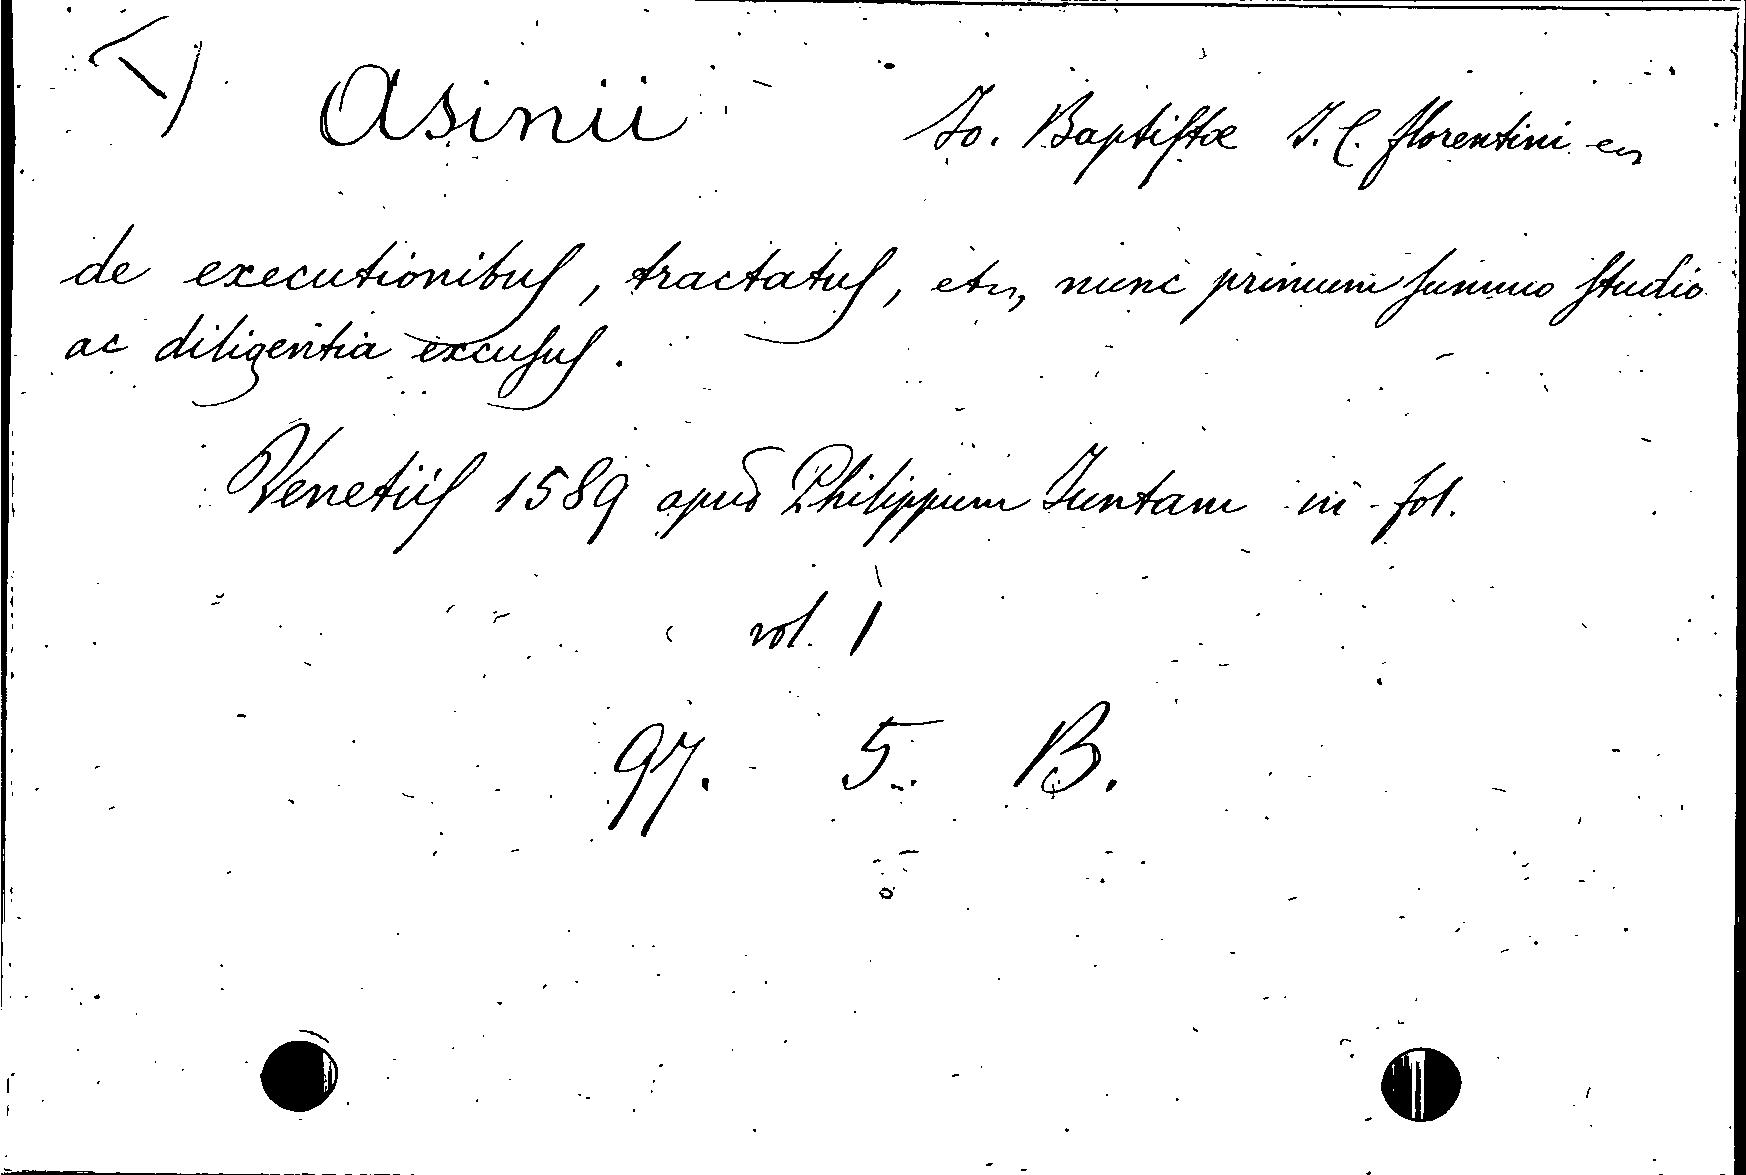 Asinii Jo. Baptistæ J. C. florentini
de executionibus, tractatus, etc, nunc primum summo studio
ac diligentia excusus.
Venetiis 1589 apud Philippum Juntam in-fol.
vol. 1
97. 5. B.